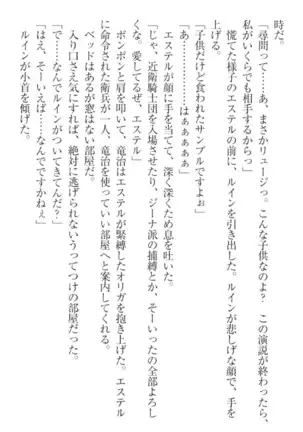 時だ。
「尋問って……あ、まさかリュージっ。こんな子供なのよ？　この演説が終わったら、
私がいくらでも相手するからっ」
慌てた様子のエステルの前に、ルインを引き出した。ルインが悲しげな顔で、手を
上げる。
「子供だけど食われたサンプルですよぉ」
「あ……はぁぁぁぁぁ」
エステルが顔に手を当てて、深く深くため息を吐いた。
「じゃ、近衛騎士団を入場させたり、ジーナ派の捕縛とか、そーいったの全部よろし
くな、愛してるぜ、エステル」
ポンポンと肩を叩いて、竜治はエステルが緊縛したオリガを抱き上げた。エステル
に命令された衛兵が一人、竜治を使っていい部屋へと案内してくれる。
ベッドはあるが窓はない部屋だ。
入り口さえ気にすれば、絶対に逃げられないうってつけの部屋だった。
「で……なんでルインがついてきてんだ？」
「はえ、そーいえば……なんでですかねぇ」
ルインが小首を傾げた。